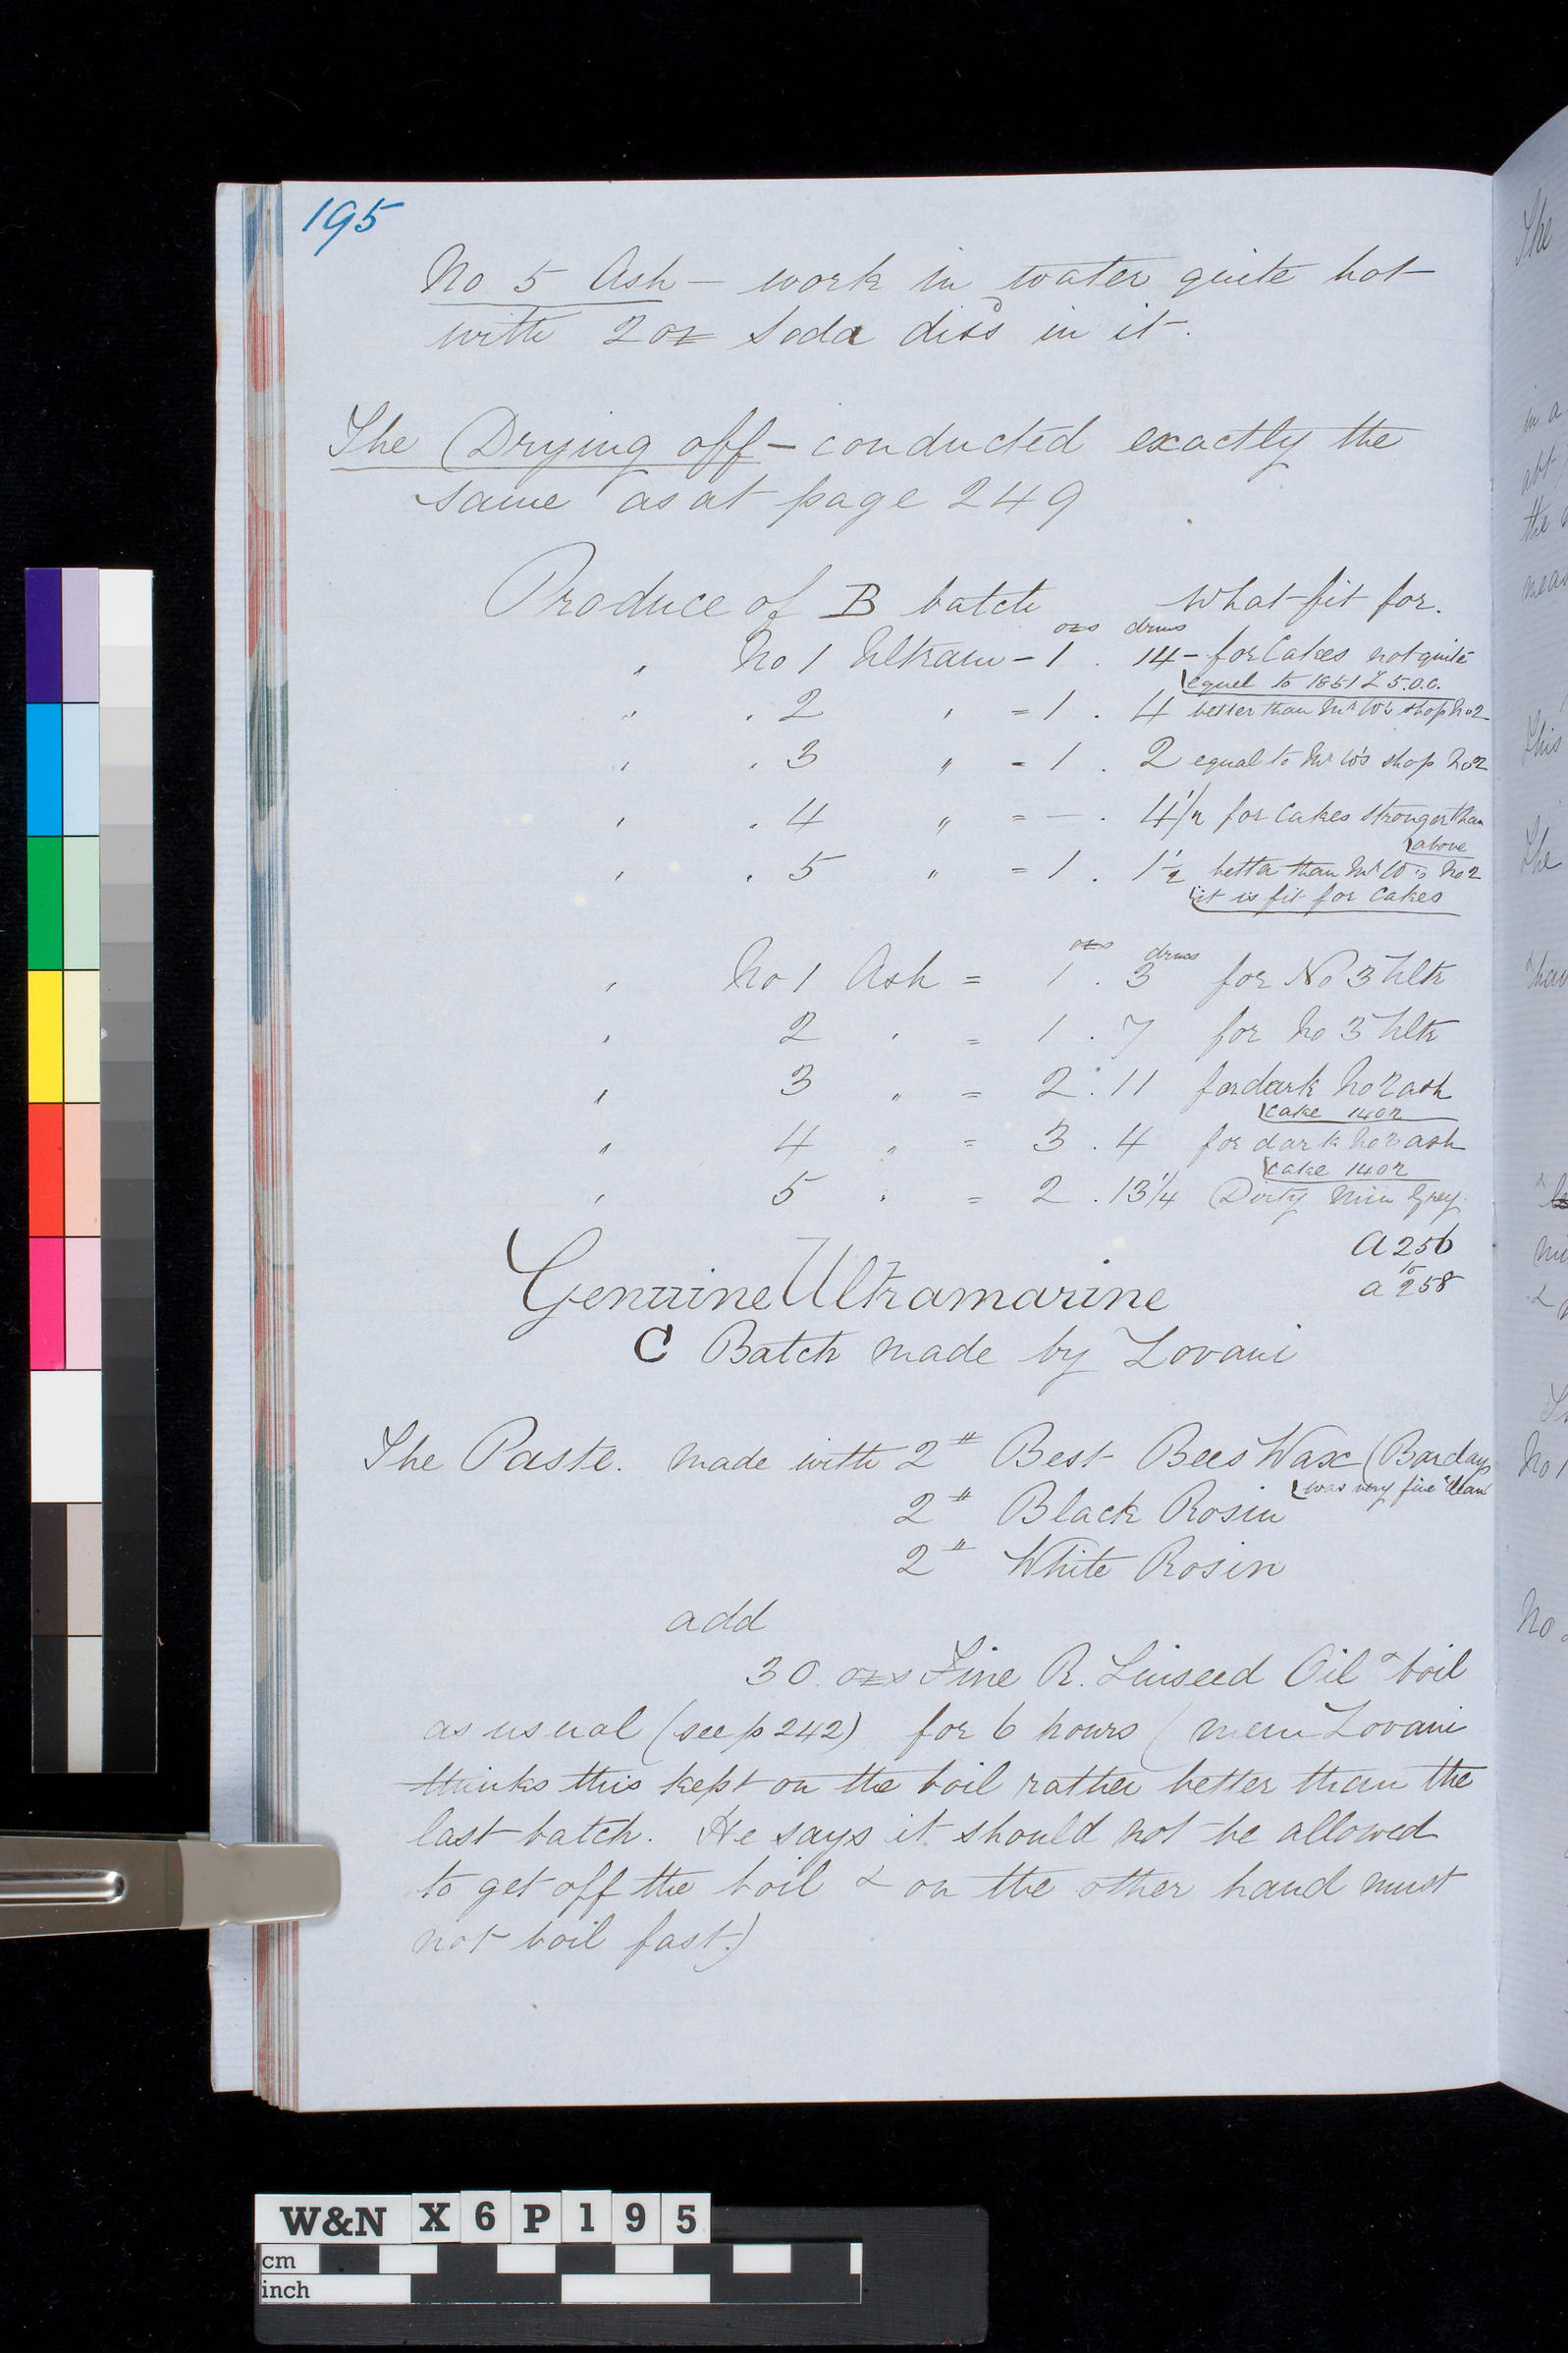 195
No 5 Ash — work in water quite hot
with 2 oz Soda dissd in it.
The Drying off — conducted exactly the
same as at page 249
Produce of B batch What fit for.
ozs drms
" No 1 Ultram - 1 . 14 - for Cakes not quite
equal to 1851 £5.0.0.
" " 2 " = 1 . 4 better than Mr W's shop No 2
" " 3 " = 1 . 2 equal to Mr W's shop No 2
" " 4 " = — . 4 1/2 for Cakes stronger than
above
" " 5 " = 1 . 1 1/2 better than Mr W's No 2
it is fit for Cakes
ozs drms
" No 1 Ash = 1 . 3 for No 3 Ultr
" 2 " = 1 . 7 for No 3 Ultr
" 3 " = 2 . 11 for dark No 2 ash
Cake 14oz
" 4 " = 3 . 4 for dark No 2 ash
Cake 14oz
" 5 " = 2 . 13 1/4 Dirty Min Grey
A 256
to
a 258
Genuine Ultramarine
C Batch made by Lovani
The Paste. made with 2 # Best Bees Wax (Barclays
was very fine & clean
2 # Black Rosin
2 # White Rosin
add
30 ozs Fine R. Linseed Oil & boil
as usual (see p 242) for 6 hours (mem Lovani
thinks this kept on the boil rather better than the
last batch. He says it should not be allowed
to get off the boil & on the other hand must
not boil fast.)
The
in a
abt
the
meas
This
The
No 1
No
W&N X6P195
cm
inch